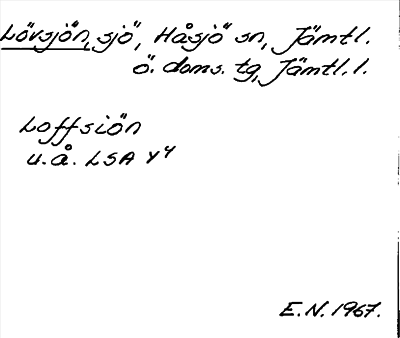 Lövsjön, sjö, Håsjö sn, Jämtl.
ö. doms. tg, Jämtl. l.
Loffsiön
u.å. LSA Y4
E.N. 1967.